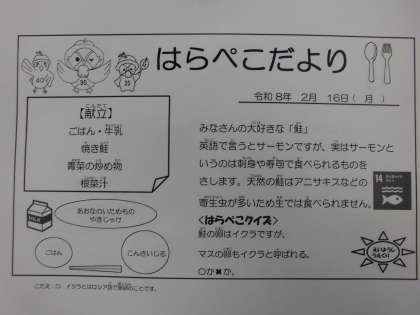 はらぺこだより
令和8年 2月 16日( 月 )
【献立】
ごはん・牛乳
焼き鮭
青菜の炒め物
根菜汁
みなさんの大好きな「鮭」
英語で言うとサーモンですが、実はサーモンと
いうのは刺身や寿司で食べられるものを
さします。天然の鮭はアニサキスなどの
寄生虫が多いため生では食べられません。
<はらぺこクイズ>
鮭の卵はイクラですが、
マスの卵もイクラと呼ばれる。
○か✖か。
MILK
あおなのいためもの
やきじゃけ
ごはん
こんさいじる
14
こたえ：○ イクラとはロシア語で魚卵のことです。